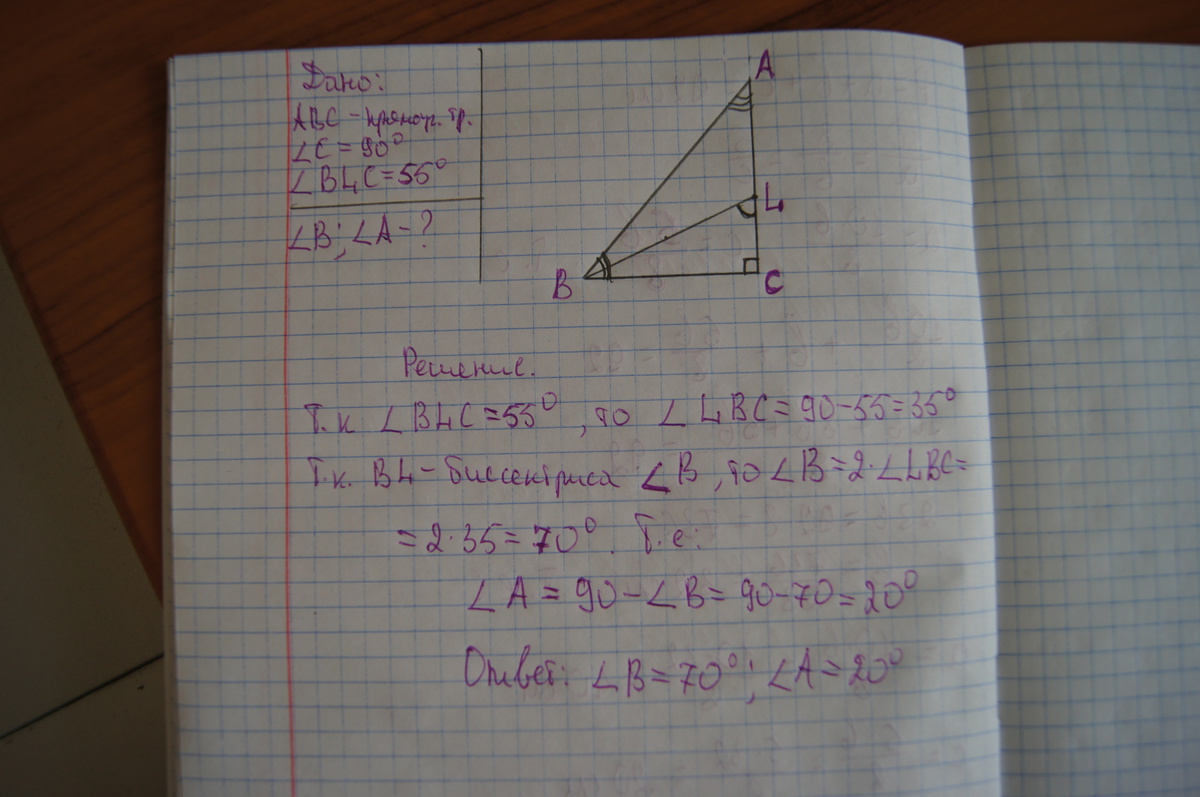 Дано:
ABC - прямоуг. тр.
∠C = 90°
∠BLC = 55°
∠B; ∠A - ?
A
L
B
C
Решение.
Т.к ∠BLC = 55°, то ∠LBC = 90-55=35°
Т.к. BL - биссектриса ∠B, то ∠B = 2·∠LBC =
= 2·35 = 70°. Т.е:
∠A = 90 - ∠B = 90-70 = 20°
Ответ: ∠B = 70°; ∠A = 20°